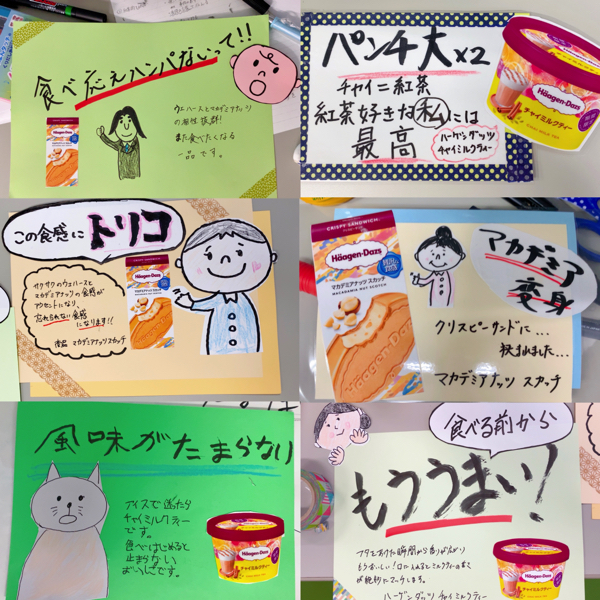 食べ応えハンパないって!!
ウエハースとマカデミアナッツ
の相性抜群!
また食べたくなる
一品です。
Häagen-Dazs
パンチ大×2
チャイ=紅茶
紅茶好きな私には
最高
ハーゲンダッツ
チャイミルクティー
Häagen-Dazs
チャイミルクティー
この食感に
トリコ
サクサクのウエハースと
マカデミアナッツの食感が
アクセントになり、
忘れられない食感
になります!!
商品 マカデミアナッツスカッチ
Häagen-Dazs
CRISPY SANDWICH
Häagen-Dazs
マカデミアナッツ スカッチ
MACADAMIA NUT SCOTCH
Häagen-Dazs
マカデミア
変身
クリスピーサンドに...
挟まれました...
マカデミアナッツ スカッチ
風味がたまらない
アイスで迷ったら
チャイミルクティー
です。
食べはじめると
止まらない
おいしさです。
Häagen-Dazs
チャイミルクティー
食べる前から
もううまい!
フタをあけた瞬間から香りが広がり
もうおいしい!口に入れるとミルクティーの甘さ
が絶妙にマッチします。
ハーゲンダッツ チャイミルクティー
Häagen-Dazs
チャイミルクティー